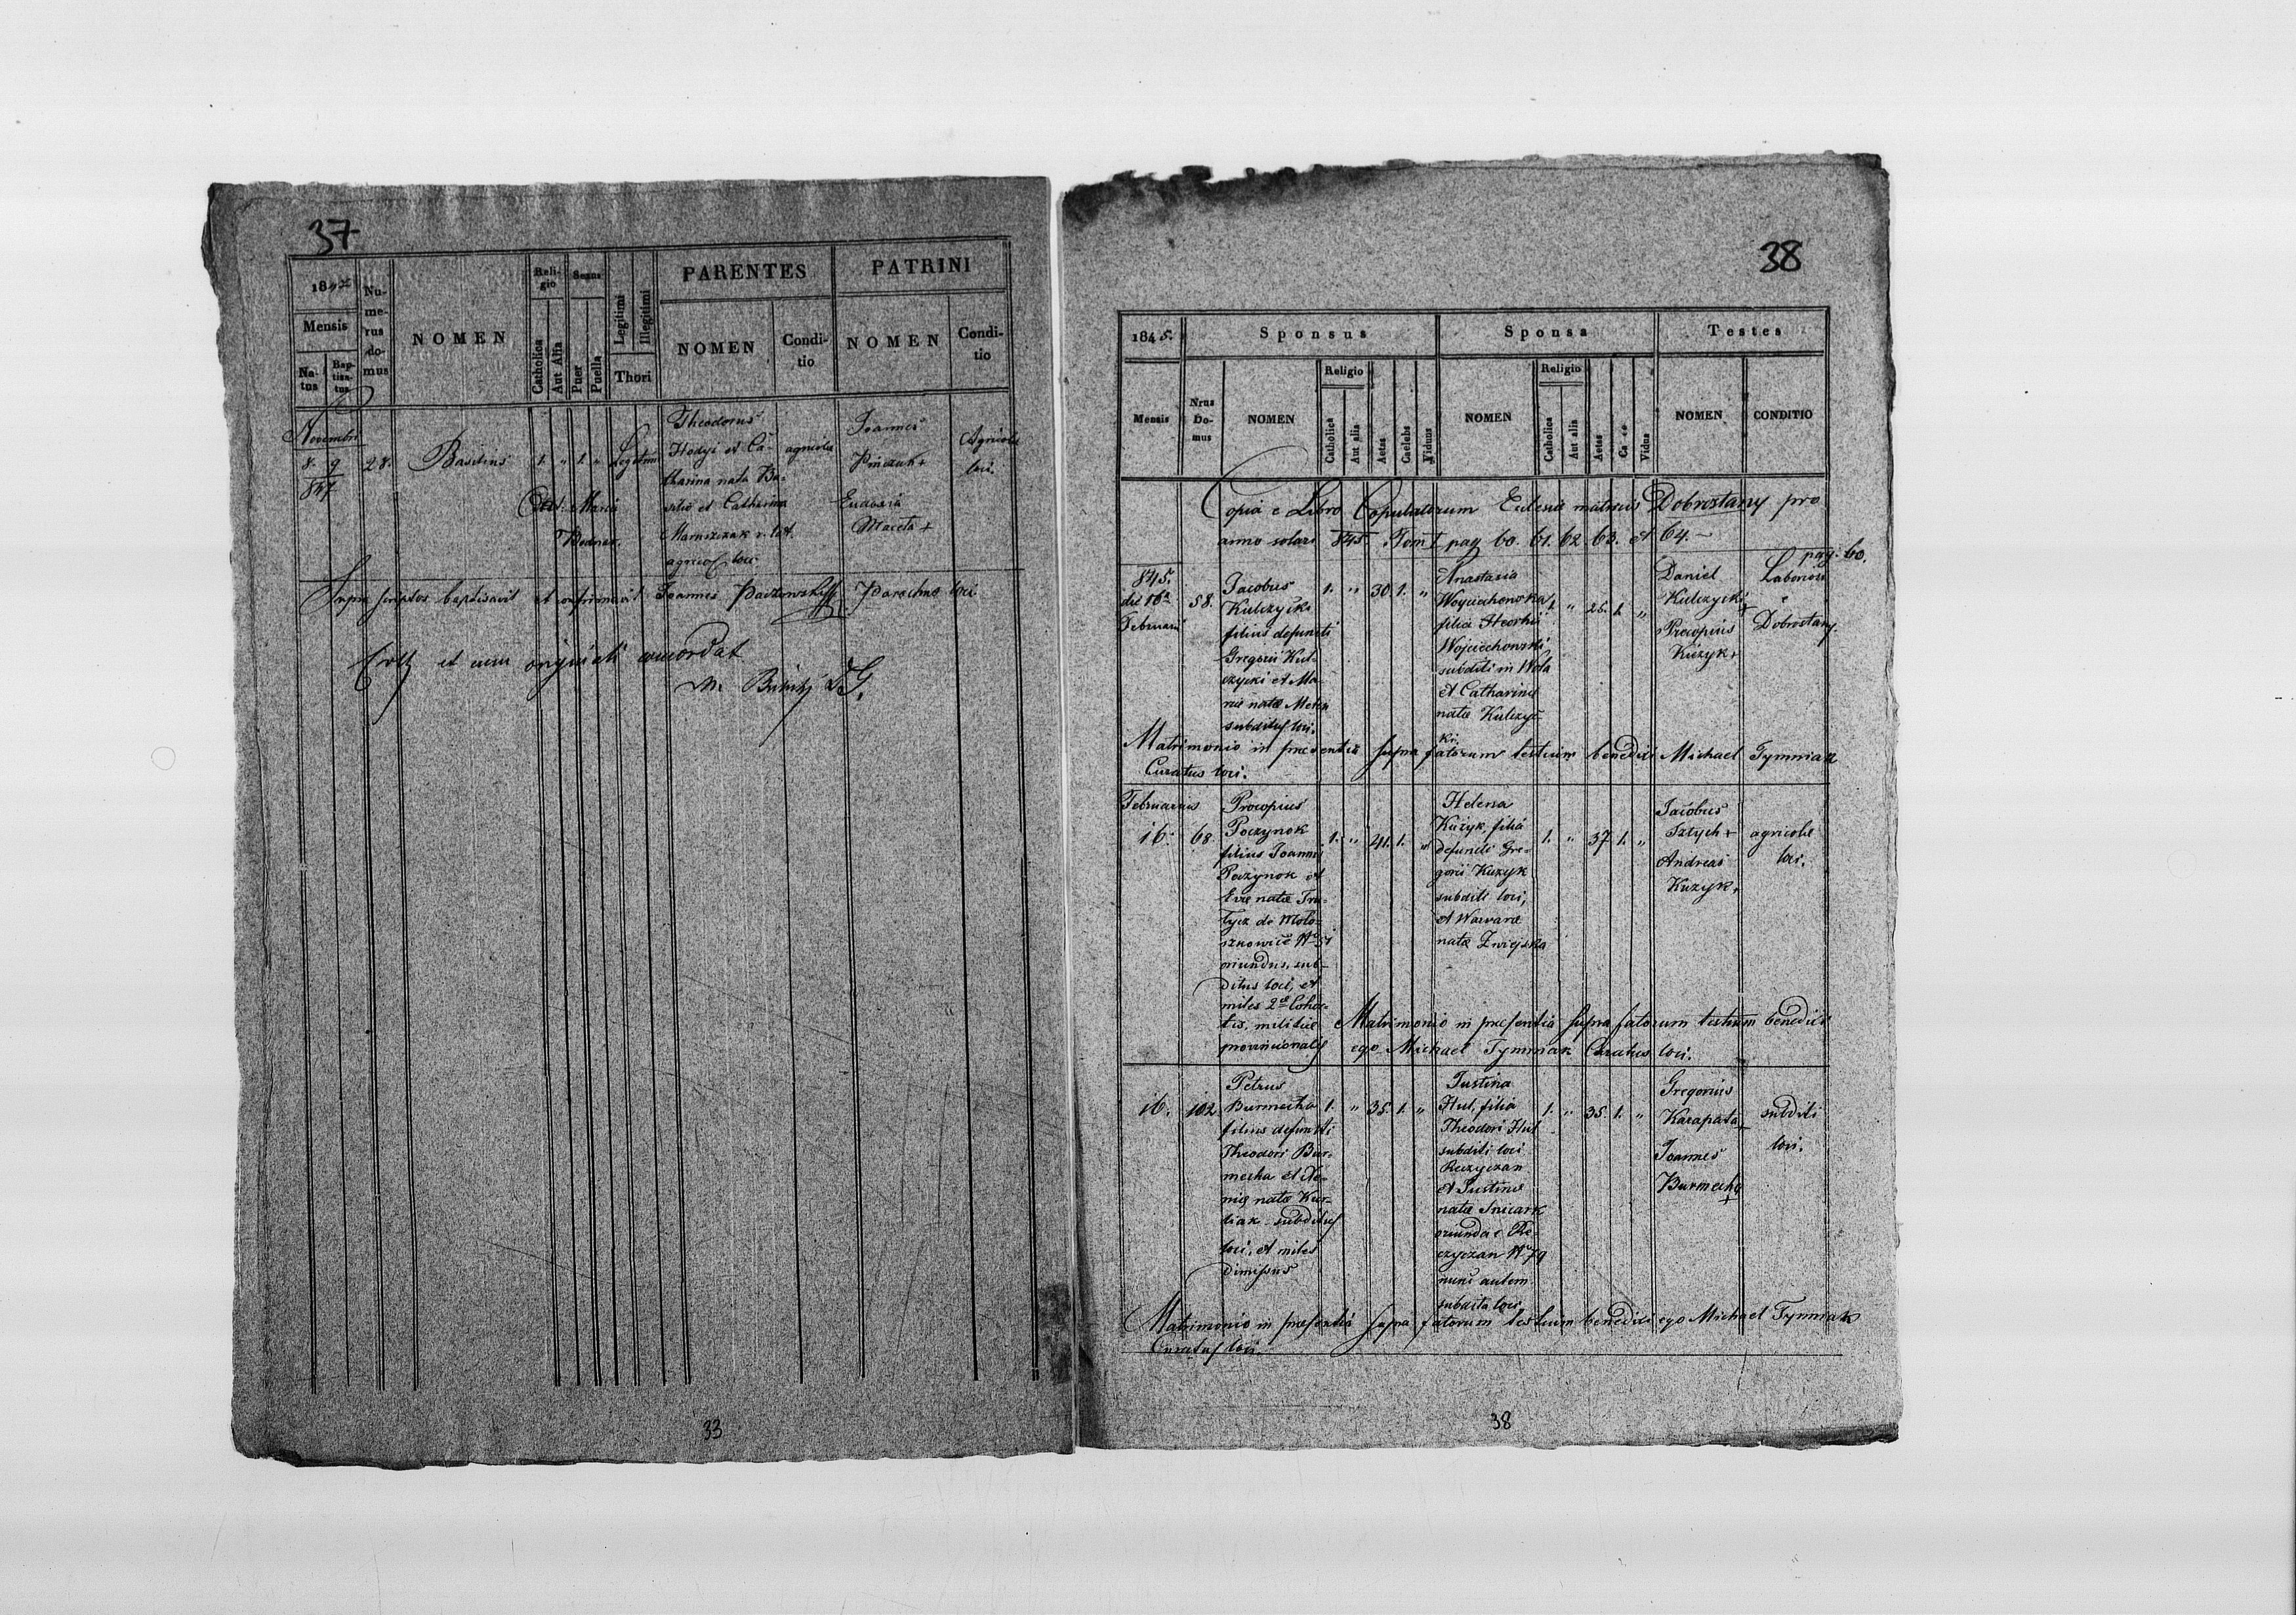 37
18
Mensis
Na-
tus
Bap-
tisa-
tus
Nu-
me-
rus
do-
mus
NOMEN
Reli-
gio
Catholica
Aut Alia
Sexus
Puer
Puella
Legitimi
Illegitimi
Thori
PARENTES
NOMEN
Condi-
tio
PATRINI
NOMEN
Condi-
tio
Novembri
8. 9 28. Basilius 1. " 1. "
847
Theodorus
Hodyi et Ca-
tharina nata Ba-
silio et Catharina
agricola
agricol loci
Joannes
Eudoxia
Maceta +
Agricola
loci.
Obst: Maria
Bodnar.
Supra scriptos baptisavit et confirmavit Joannes Parochus loci.
et cum originali concordat
33
38
1845.
Mensis
Nrus
Do-
mus
Sponsus
NOMEN
Religio
Catholica
Aut alia
Aetas
Caelebs
Viduus
Sponsa
NOMEN
Religio
Catholica
Aut alia
Aetas
Vidua
Testes
NOMEN
CONDITIO
Copia e Libro Copulatorum Eclesiæ matricis Dobrostany pro
anno solari 845 Tom I pag 60. 61. 62. 63. et 64.
pag. 60.
845.
die 16ª
Februarii
58.
Jacobus
Kulczycki
filius defuncti
Gregorii Kul-
czycki et Ma-
riæ natæ
subditus loci.
1. " 30. 1. "
Anastasia
Woyciechowska
filia
Wojciechowski
subditi in Wola
et Catharinæ
natæ Kulczyc-
ki.
1. " 1. "
Daniel
Kulczycki +
Procopius
Kuzyk +
Dobrostany.
Matrimonio in presentia supra fatorum testium benedixi Michael Tymniak
Curatus loci.
Februarius
16. 68.
Procopius
Poczynok
filius Joannis
Poczynok et
Evæ natæ Tru-
tycz de Molo-
szkowice Nº 51
oriundus, sub-
ditus loci, et
miles 2æ Cohor-
tis militiæ
provincionalis
1. " 41. 1. "
Helena
Kuzyk filia
defuncti Gre-
gorii Kuzyk
subditi loci,
et Warvaræ
natæ Zwiejska
1. " 37 1. "
Jacobus
Sztych +
Andreas
Kuzyk +
agricolæ
loci.
Matrimonio in presentia supra fatorum testium benedixi
ego Michael Tymniak Curatus loci.
16. 102.
Petrus
Burmecha
filius defuncti
Theodori Bur-
mecha et Xe-
niæ natæ Kur-
diak subditus
loci, et miles
dimissus
1. " 35. 1. "
Justina
Hul, filia
Theodori Hul
subditi loci
Reczyczan
et Justinæ
natæ
oriunda e Re-
czyczan Nº 79
nunc autem
subdita loci.
1. " 35. 1. "
Gregorius
Karapata +
Joannes
Burmecha
+
subditi
loci.
Matrimonio in presentia supra fatorum testium benedixi ego Michael Tymniak
Curatus loci.
38